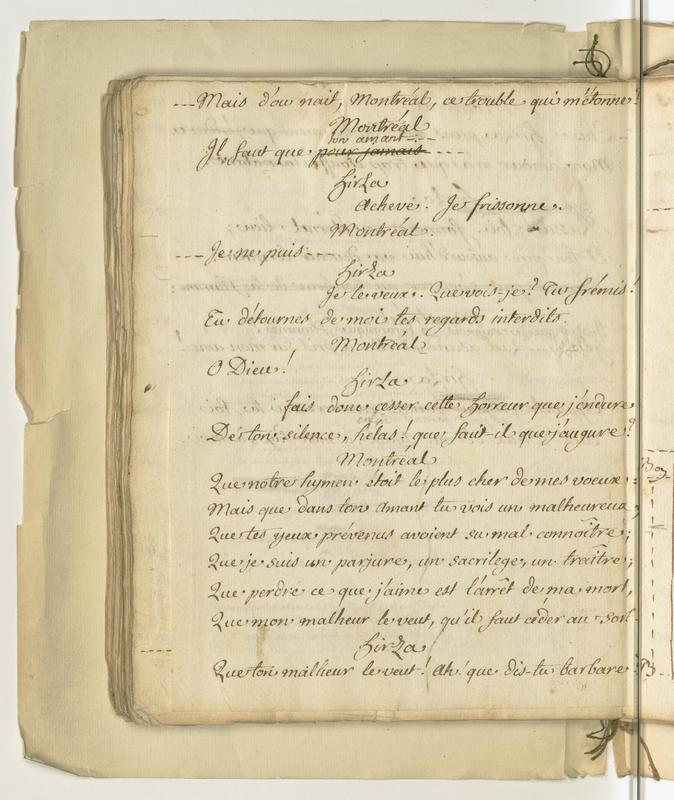 ---Mais d'ou nait, Montréal, ce trouble qui m'étonne?
Montréal
ton amant---
Il faut que pour jamais----
hirza
achevé. Je frissonne.
Montréal.
----Je ne puis---
hirza
Je le veux. Que vois-je? Tu frémis!
Tu détournes de moi tes regards interdits.
Montréal
O Dieu!
hirza
fais donc cesser cette horreur que j'endure
De ton silence, helas! que faut-il que j'augure?
Montréal
Que notre hymen étoit le plus cher de mes voeux:
Mais que dans ton amant tu vois un malheureux,
Que tes yeux prévenus avoient su mal connoître;
Que je suis un parjure, un sacrilege, un traître;
Que perdre ce que j'aime est l'arrêt de ma mort,
Que mon malheur le veut, qu'il faut céder au sort-
hirza
Que ton malheur le veut! Ah! que dis-tu barbare?